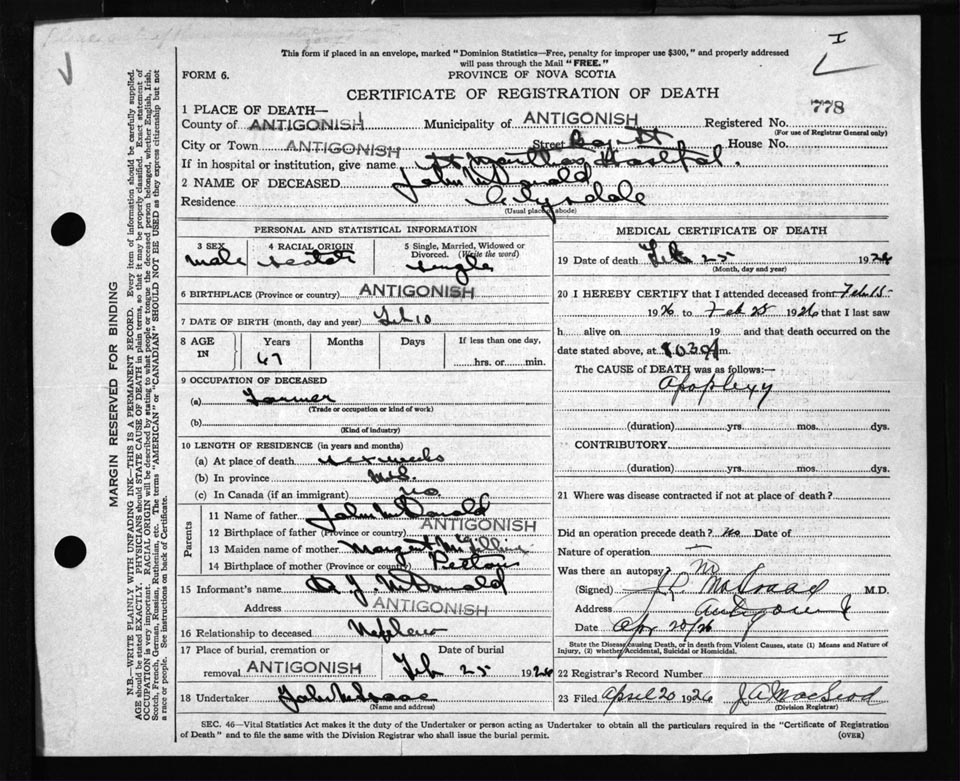 I
This form if placed in an envelope, marked "Dominion Statistics—Free, penalty for improper use $300," and properly addressed
will pass through the Mail "FREE."
FORM 6.
PROVINCE OF NOVA SCOTIA
CERTIFICATE OF REGISTRATION OF DEATH
778
1 PLACE OF DEATH—
County of ANTIGONISH Municipality of ANTIGONISH Registered No.
(For use of Registrar General only)
City or Town ANTIGONISH Street Bay St House No.
If in hospital or institution, give name St Marthas Hospital.
2 NAME OF DECEASED John McDonald
Residence Clydsdale
(Usual place of abode)
PERSONAL AND STATISTICAL INFORMATION
3 SEX
male
4 RACIAL ORIGIN
scotch
5 Single, Married, Widowed or
Divorced. (Write the word)
single
6 BIRTHPLACE (Province or country) ANTIGONISH
7 DATE OF BIRTH (month, day and year) Feb 10
8 AGE
IN
Years
67
Months
Days
If less than one day,
hrs. or min.
9 OCCUPATION OF DECEASED
(a) Farmer
(Trade or occupation or kind of work)
(b)
(Kind of industry)
10 LENGTH OF RESIDENCE (in years and months)
(a) At place of death weeks
(b) In province N.S.
(c) In Canada (if an immigrant) no
Parents
11 Name of father John McDonald
12 Birthplace of father (Province or country) ANTIGONISH
13 Maiden name of mother Margaret
14 Birthplace of mother (Province or country) Pictou
15 Informant's name A. J. McDonald
Address ANTIGONISH
16 Relationship to deceased Nephew
17 Place of burial, cremation or
removal ANTIGONISH
Date of burial
Feb 25 1926
18 Undertaker John McIsaac
(Name and address)
MEDICAL CERTIFICATE OF DEATH
19 Date of death Feb 25 1926
(Month, day and year)
20 I HEREBY CERTIFY that I attended deceased from Feb 15
1926 to Feb 25 1926 that I last saw
h alive on 19 and that death occurred on
date stated above, at 8.03 A m.
The CAUSE of DEATH was as follows:—
Apoplexy
(duration) yrs. mos. dys.
CONTRIBUTORY.
(duration) yrs. mos. dys.
21 Where was disease contracted if not at place of death?
Did an operation precede death? no Date of
Nature of operation
Was there an autopsy? No
(Signed) M.D.
Address Antigonish
Date Apr 20/26
State the Disease causing Death, or in death from Violent Causes, state (1) Means and Nature of
Injury, (2) whether Accidental, Suicidal or Homicidal.
22 Registrar's Record Number
23 Filed April 20 1926 J A MacLeod
(Division Registrar)
SEC. 46—Vital Statistics Act makes it the duty of the Undertaker or person acting as Undertaker to obtain all the particulars required in the "Certificate of Registration
of Death" and to file the same with the Division Registrar who shall issue the burial permit.
(OVER)
MARGIN RESERVED FOR BINDING
N.B.—WRITE PLAINLY WITH UNFADING INK—THIS IS A PERMANENT RECORD. Every item of information should be carefully supplied.
AGE should be stated EXACTLY. PHYSICIANS should STATE CAUSE OF DEATH in plain terms, so that it may be properly classified. Exact statement of
OCCUPATION is very important. RACIAL ORIGIN will be described by stating to what people or tongue the deceased person belonged, whether English, Irish,
Scotch, French, German, Russian, Ruthenian, etc. The terms "AMERICAN" or "CANADIAN" SHOULD NOT BE USED as they express citizenship but not
a race or people. See instructions on back of Certificate.